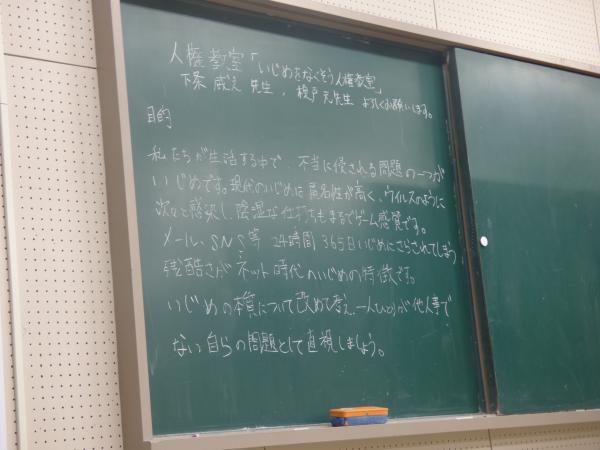 人権教室「いじめをなくそう人権教室」
下条 威え 先生, 榎戸 元先生 よろしくお願いします。
目的
私たちが生活する中で、不当に侵される問題の一つが
いじめです。現代のいじめは匿名性が高く、ウイルスのように
次々と感染し、陰湿な仕打ちもまるでゲーム感覚です。
メール、SNS等 24時間 365日いじめにさらされてしまう
残酷さがネット時代のいじめの特徴です。
いじめの本質について改めて考え、一人ひとりが他人事で
ない自らの問題として直視しましょう。